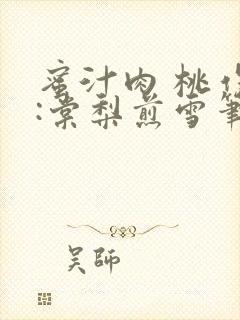 蜜汁肉桃作
:棠梨煎雪笔
吴師